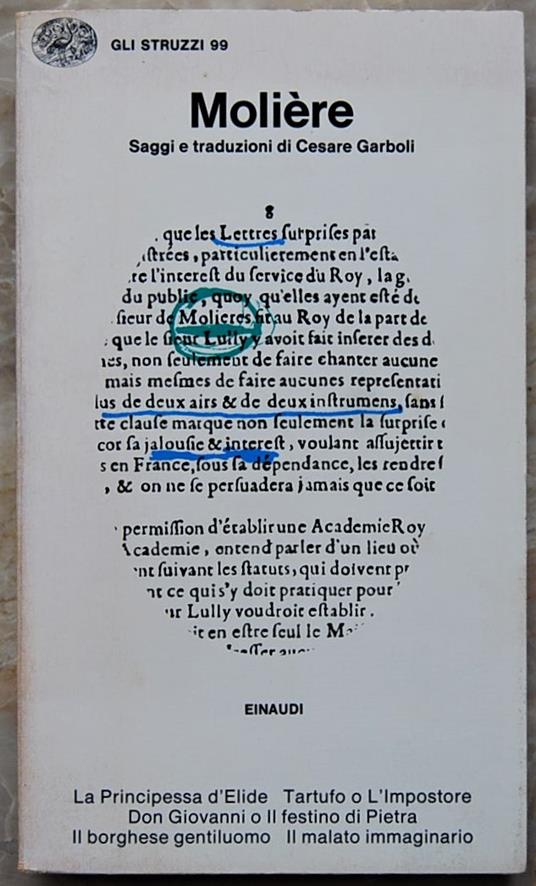 GLI STRUZZI 99
Molière
Saggi e traduzioni di Cesare Garboli
8
que les Lettres surprises par
istrées, particulierement en l'esta
re l'interest du service du Roy, la g
du public, quoy qu'elles ayent esté de
sieur de Molieres fit au Roy de la part de
que le sieur Lully y avoit fait inserer des d
nes, non seulement de faire chanter aucune
mais mesmes de faire aucunes representati
lus de deux airs & de deux instrumens, sans
tte clause marque non seulement la surprise
cor sa jalousie & interest, voulant assujettir t
s en France, sous sa dépendance, les rendre
, & on ne se persuadera jamais que ce soit
permission d'établir une Academie Roy
Academie, entend parler d'un lieu où
nt suivant les statuts, qui doivent pr
nt ce qui s'y doit pratiquer pour
ur Lully voudroit establir.
it en estre seul le Ma
EINAUDI
La Principessa d'Elide Tartufo o L'Impostore
Don Giovanni o Il festino di Pietra
Il borghese gentiluomo Il malato immaginario